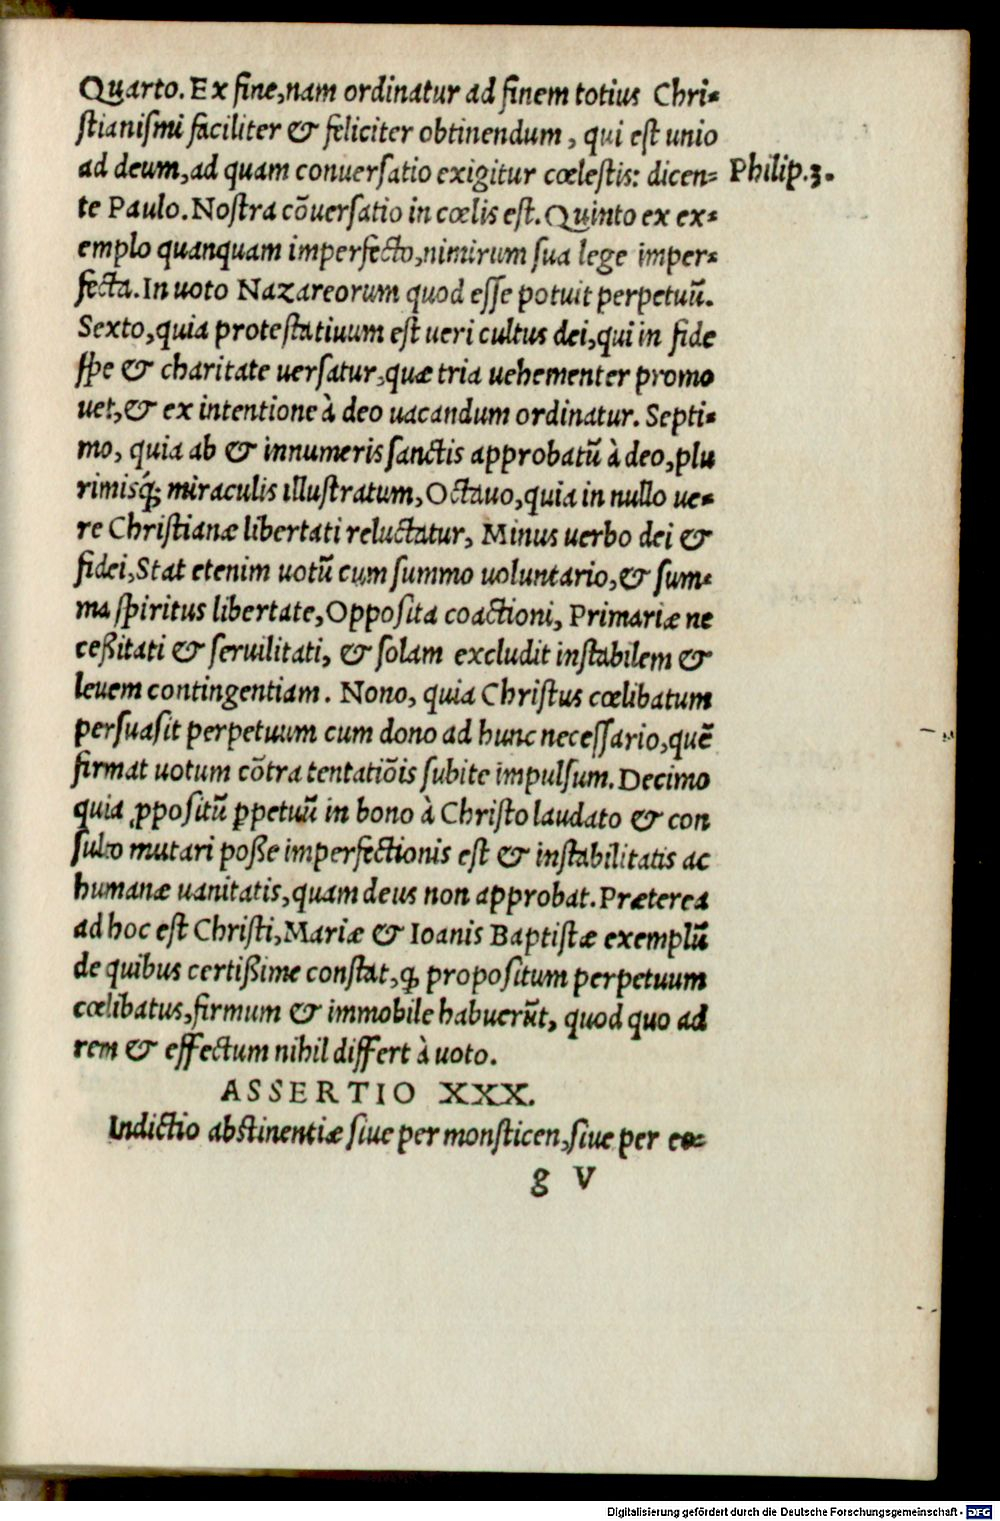 Quarto. Ex fine, nam ordinatur ad finem totius Chri-
stianismi faciliter & feliciter obtinendum, qui est unio
ad deum, ad quam conuersatio exigitur cœlestis: dicen- Philip. 3.
te Paulo. Nostra cõuersatio in cœlis est. Quinto ex ex-
emplo quanquam imperfecto, nimirum sua lege imper-
fecta. In uoto Nazareorum quod esse potuit perpetuũ.
Sexto, quia protestatiuum est ueri cultus dei, qui in fide
spe & charitate uersatur, quæ tria uehementer promo
uet, & ex intentione à deo uacandum ordinatur. Septi-
mo, quia ab & innumeris sanctis approbatũ à deo, plu
rimisq́; miraculis illustratum, Octauo, quia in nullo ue-
re Christianæ libertati reluctatur, Minus uerbo dei &
fidei, Stat etenim uotũ cum summo uoluntario, & sum-
ma spiritus libertate, Opposita coactioni, Primariæ ne
ceßitati & seruilitati, & solam excludit instabilem &
leuem contingentiam. Nono, quia Christus cœlibatum
persuasit perpetuum cum dono ad hunc necessario, quẽ
firmat uotum cõtra tentatiõis subite impulsum. Decimo
quia ꝓpositũ ꝑpetuũ in bono à Christo laudato & con
sulto mutari poße imperfectionis est & instabilitatis ac
humanæ uanitatis, quam deus non approbat. Præterea
ad hoc est Christi, Mariæ & Ioanis Baptistæ exemplũ
de quibus certißime constat, ꝙ propositum perpetuum
cœlibatus, firmum & immobile habuerũt, quod quo ad
rem & effectum nihil differt à uoto.
ASSERTIO XXX.
Indictio abstinentiæ siue per monsticen, siue per eo-
g V
Digitalisierung gefördert durch die Deutsche Forschungsgemeinschaft - DFG